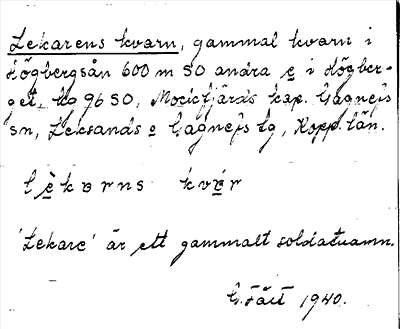 Lekarens kvarn, gammal kvarn i
Högbergsån 600 m SO andra e i Högber-
get, bg 96 SO, Mockfjärds kap. Gagnefs
sn, Leksands o Gagnefs tg, Kopp. län.
kvɛr
'Lekare' är ett gammalt soldatnamn.
G. 1940.